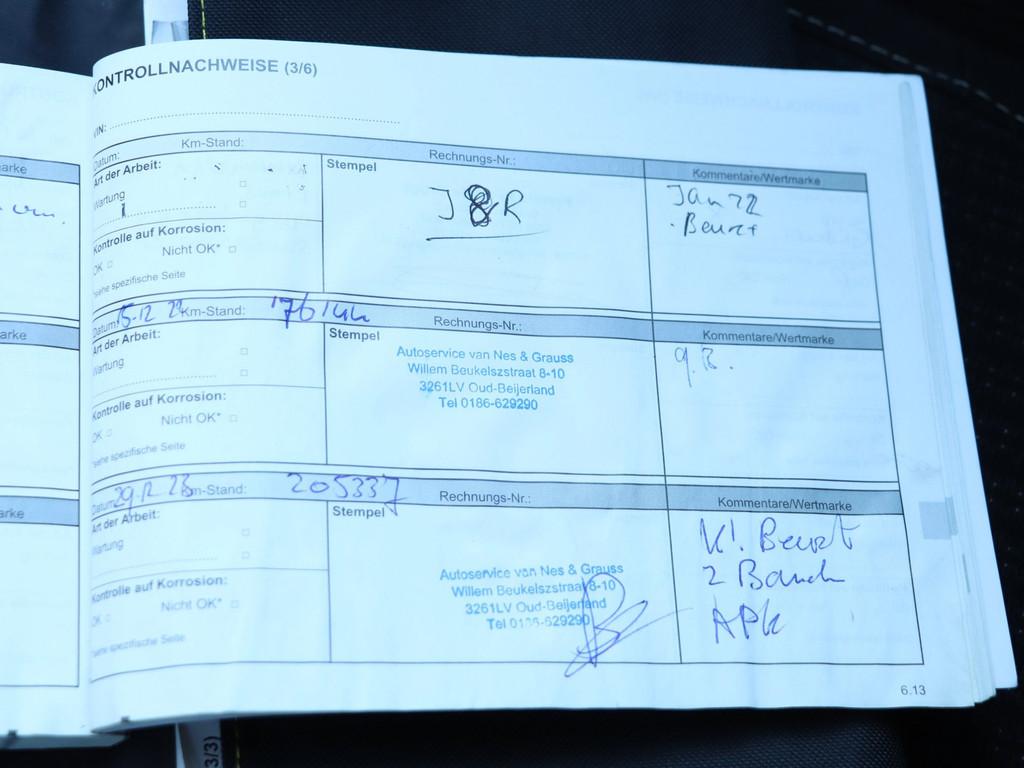 KONTROLLNACHWEISE (3/6)
VIN:
Datum: Km-Stand: Rechnungs-Nr.: Kommentare/Wertmarke
Art der Arbeit: Stempel
Wartung
J & R
Jan 22
Beurt
Kontrolle auf Korrosion:
OK Nicht OK*
*siehe spezifische Seite
Datum: 15-12 22 Km-Stand: 176144 Rechnungs-Nr.: Kommentare/Wertmarke
Art der Arbeit: Stempel
Wartung
Autoservice van Nes & Grauss
Willem Beukelszstraat 8-10
3261LV Oud-Beijerland
Tel 0186-629290
g.B.
Kontrolle auf Korrosion:
OK Nicht OK*
*siehe spezifische Seite
Datum: 29.12 23 Km-Stand: 205337 Rechnungs-Nr.: Kommentare/Wertmarke
Art der Arbeit: Stempel
Wartung
Autoservice van Nes & Grauss
Willem Beukelszstraat 8-10
3261LV Oud-Beijerland
Tel 0186-629290
K! Beurt
2 Band
APK
Kontrolle auf Korrosion:
OK Nicht OK*
*siehe spezifische Seite
6.13
arke
arke
arke
3/3)